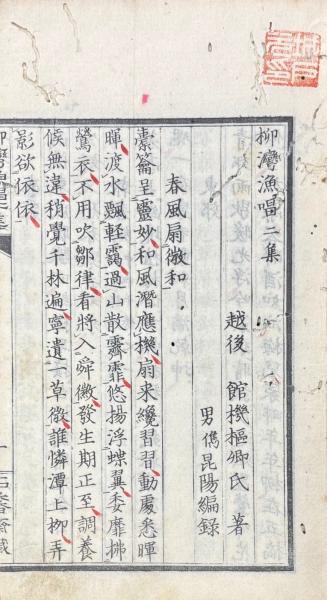 柳灣漁唱二集
越後 館機樞卿氏 著
男儁昆陽編錄
春風扇微和
橐籥呈靈妙和風潛應機扇来纔習習動處悉暉
暉渡水飄輕靄過山散霽霏悠揚浮蝶翼委靡拂
鶯衣不用吹鄒律看將入舜徽發生期正至調養
候無違稍覺千林遍寧遺一草微誰憐潭上栁弄
影欲依依